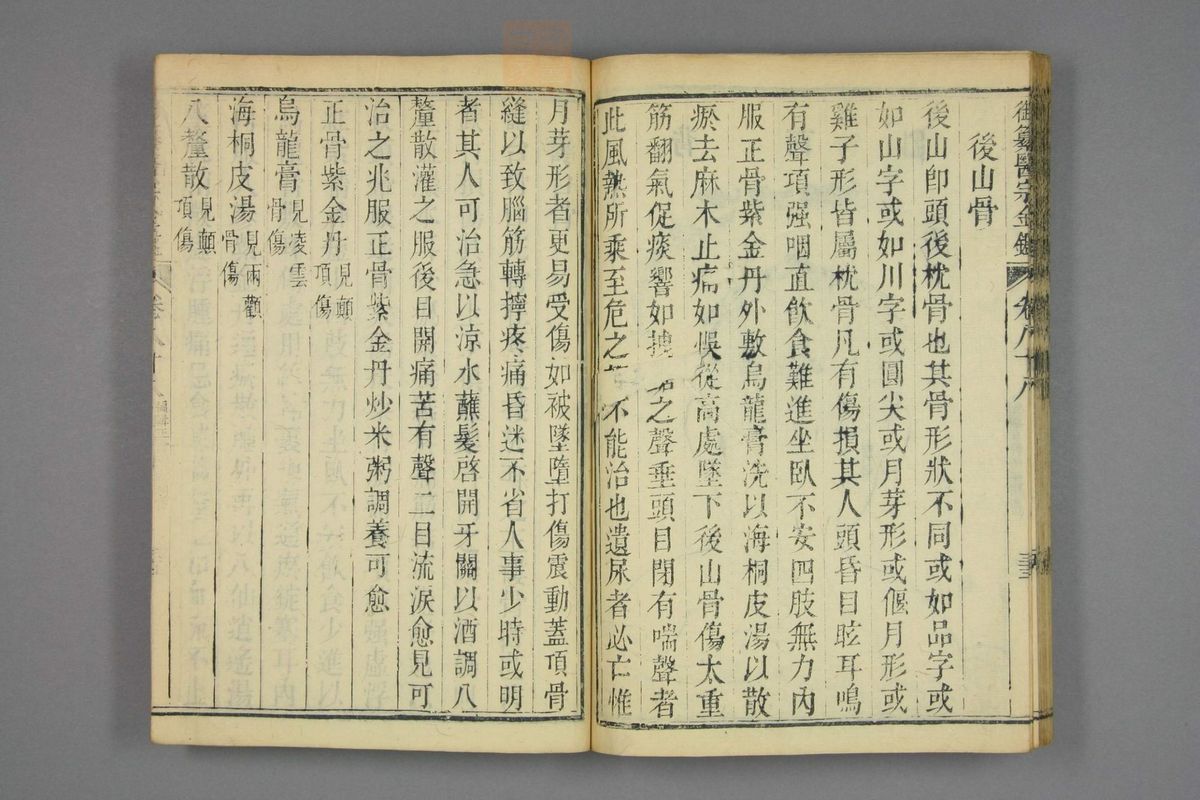 御纂醫宗金鑑 卷八十八
後山骨
後山卽頭後枕骨也其骨形狀不同或如品字或
如山字或如川字或圓尖或月芽形或偃月形或
雞子形皆屬枕骨凡有傷損其人頭昏目眩耳鳴
有聲項强咽直飮食難進坐臥不安四肢無力內
服正骨紫金丹外敷烏龍膏洗以海桐皮湯以散
瘀去麻木止痛如悞從高處墜下後山骨傷太重
筋翻氣促痰響如拽 之聲垂頭目閉有喘聲者
此風熱所乘至危之 不能治也遺尿者必亡惟
月芽形者更易受傷如被墜墮打傷震動蓋頂骨
縫以致腦筋轉擰疼痛昏迷不省人事少時或明
者其人可治急以涼水蘸髮啓開牙關以酒調八
釐散灌之服後目開痛苦有聲二目流淚愈見可
治之兆服正骨紫金丹炒米粥調養可愈
正骨紫金丹 見顚頂傷
烏龍膏 見凌雲骨傷
海桐皮湯 見兩顴骨傷
八釐散 見顚頂傷